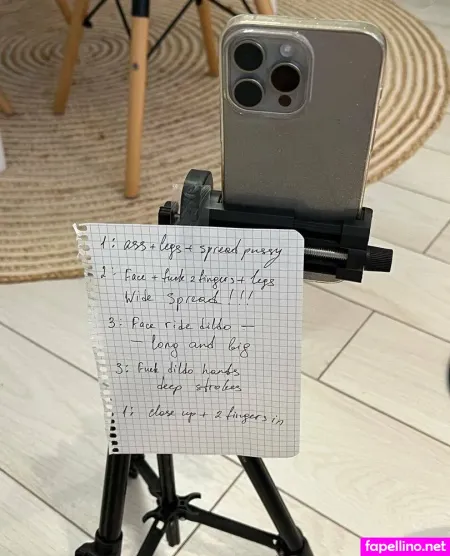 1: ass + legs + spread pussy
2: Face + fuck 2 fingers + legs
Wide spread!!!
3: Face ride dildo –
– long and big
3: Fuck dildo hands
deep strokes
1: close up + 2 fingers in
fapellino.net